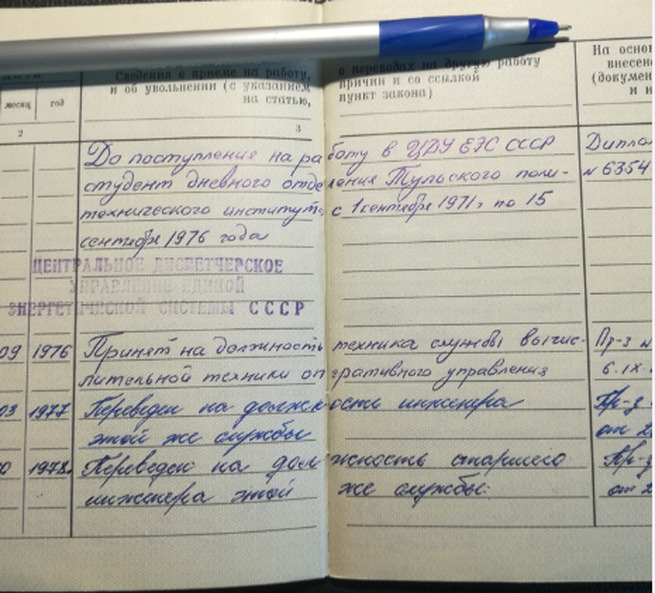 месяц год
Сведения о приеме на работу, о переводах на другую работу
и об увольнении (с указанием причин и со ссылкой
на статью, пункт закона)
На основ
внесен
(докумен
и н
2 3
До поступления на работу в ЦДУ ЕЭС СССР Дипло
студент дневного отделения Тульского поли- № 6354
технического института с 1 сентября 1971 г по 15
сентября 1976 года
ЦЕНТРАЛЬНОЕ ДИСПЕТЧЕРСКОЕ
УПРАВЛЕНИЕ ЕДИНОЙ
ЭНЕРГЕТИЧЕСКОЙ СИСТЕМЫ СССР
09 1976 Принят на должность техника службы вычис- Пр-з №
лительной техники оперативного управления 6.IX.
03 1977 Переведен на должность инженера Пр-з
этой же службы от 2
0 1978. Переведен на должность старшего Пр-з
инженера этой же службы. от 2